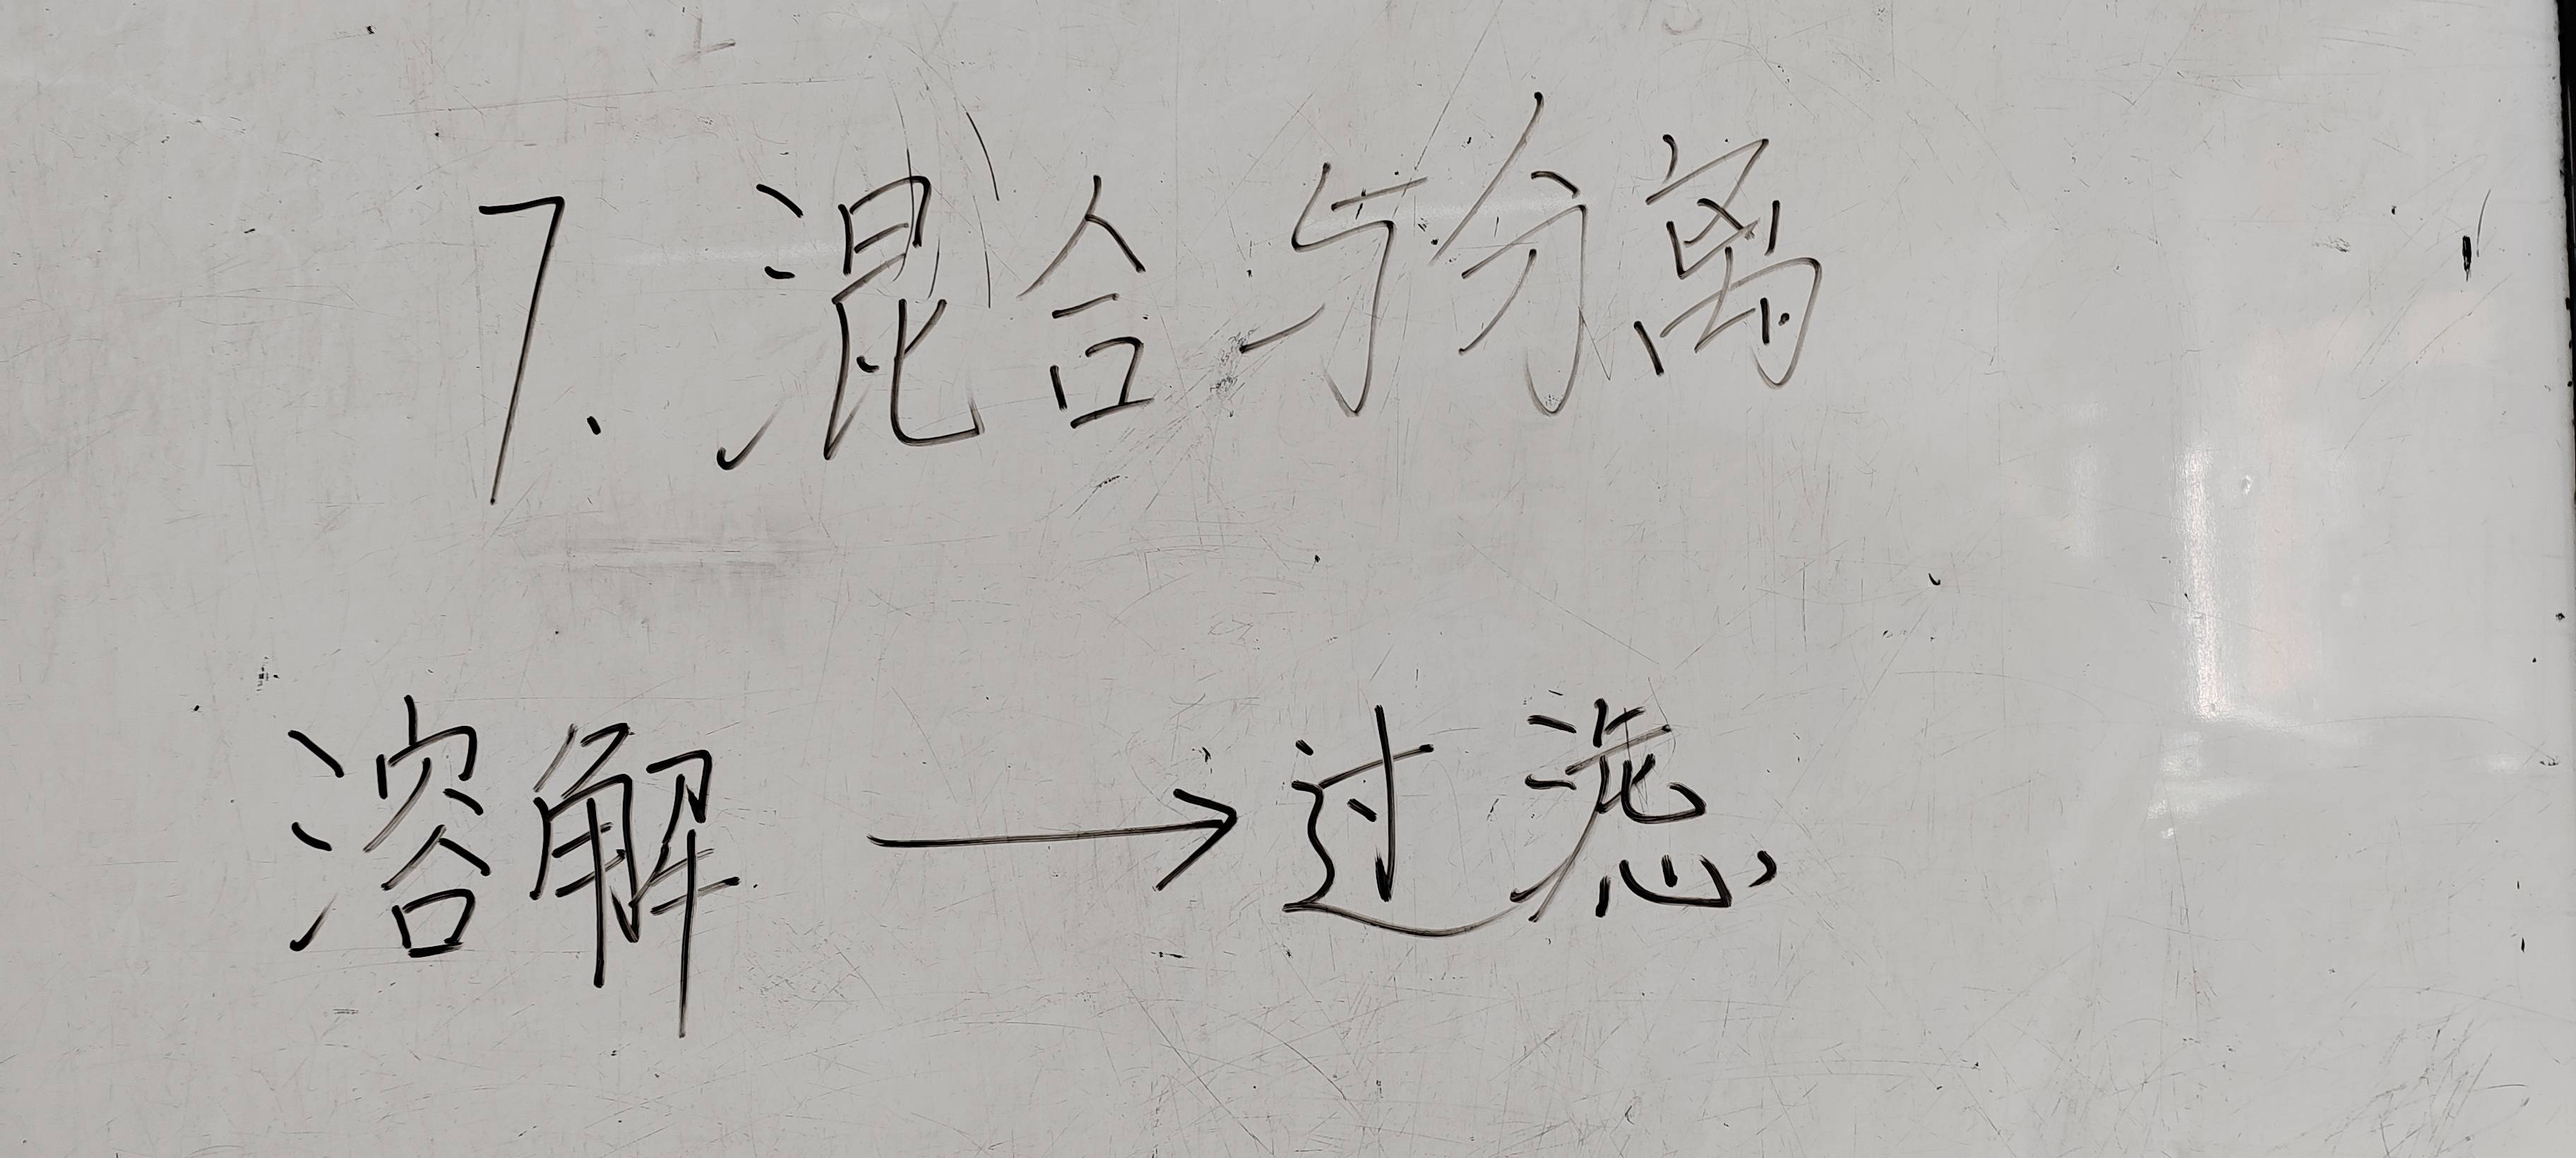 7. 混合与分离
溶解 → 过滤